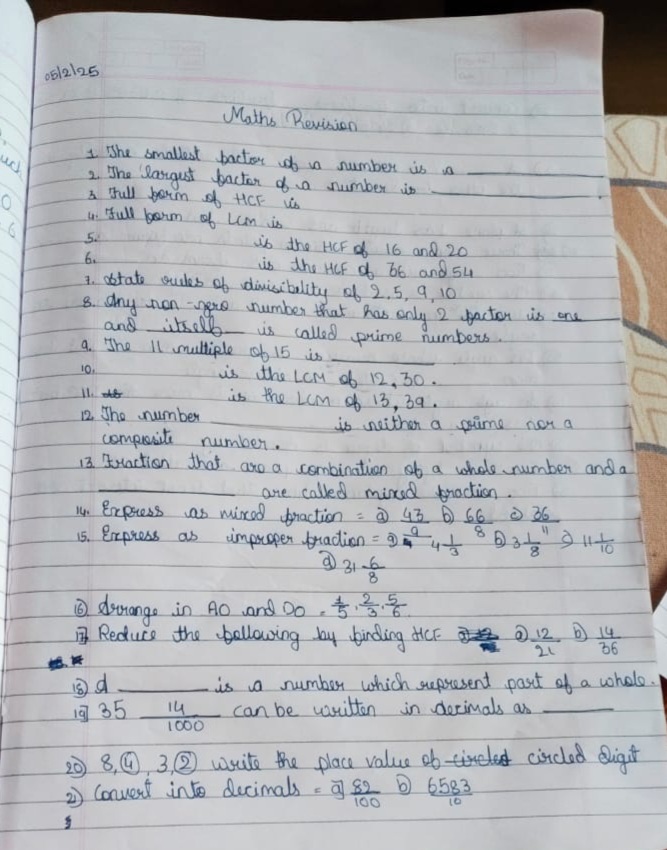 05/2/25
Maths Revision
1. The smallest factor of a number is a ______
2. The largest factor of a number is ______
3. Full form of HCF is
4. Full form of LCM is
5. is the HCF of 16 and 20
6. is the HCF of 36 and 54
7. State rules of divisibility of 2,5,9,10
8. Any non-zero number that has only 2 factor is one
and itself is called prime numbers.
9. The 11 multiple of 15 is ______.
10. is the LCM of 12,30.
11. is the LCM of 13,39.
12. The number ______ is neither a prime nor a
composite number.
13. Fraction that are a combination of a whole number and a
______ are called mixed fraction.
14. Express as mixed fraction = a) 43/9 b) 66/8 c) 36/11
15. Express as improper fraction = a) 4 1/3 b) 3 1/8 c) 11 1/10
d) 31 6/8
16) Arrange in AO and DO = 1/5, 2/3, 5/6
17) Reduce the following by finding HCF a) 12/21 b) 14/36
18) A ______ is a number which represent part of a whole.
19) 35 14/1000 can be written in decimals as ______
20) 8,④,3,② write the place value of circled digit
21) Convert into decimals = a) 82/100 b) 6583/10